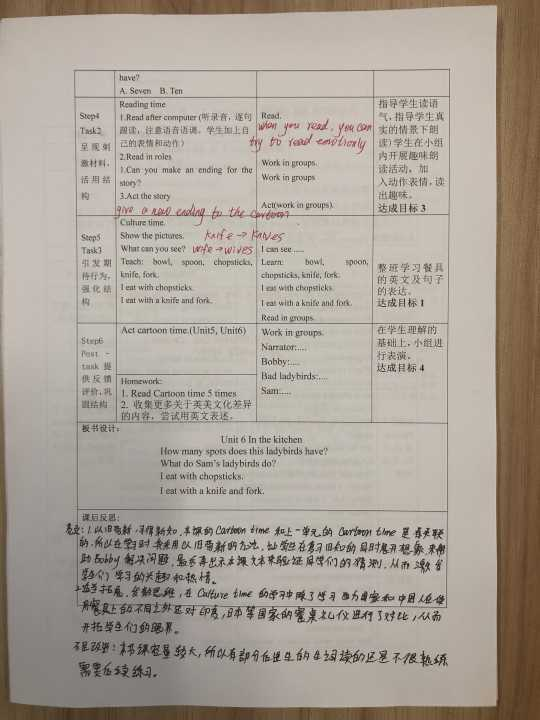 have?
A. Seven B. Ten
Step4
Task2
呈现刺
激材料,
活用结
构
Reading time
1.Read after computer (听录音,逐句
跟读,注意语音语调。学生加上自
己的表情和动作)
2.Read in roles
1.Can you make an ending for the
story?
3.Act the story
give a new ending to the cartoon
Read.
when you read, you can
try to read emotionly
Work in groups.
Work in groups
Act(work in groups).
指导学生读语
气,指导学生真
实的情景下朗
读)学生在小组
内开展趣味朗
读活动,加
入动作表情,读
出趣味。
达成目标 3
Step5
Task3
引发期
待行为,
强化结
构
Culture time.
Show the pictures. knife → knives
What can you see? wife → wives
Teach: bowl, spoon, chopsticks,
knife, fork.
I eat with chopsticks.
I eat with a knife and fork.
I can see .....
Learn: bowl, spoon,
chopsticks, knife, fork.
I eat with chopsticks.
I eat with a knife and fork.
Read in groups.
整班学习餐具
的英文及句子
的表达。
达成目标 1
Step6
Post -
task 提
供反馈
评价,巩
固结构
Act cartoon time.(Unit5, Unit6)
Homework:
1. Read Cartoon time 5 times
2. 收集更多关于英美文化差异
的内容,尝试用英文表述。
Work in groups.
Narrator:....
Bobby:....
Bad ladybirds:....
Sam:....
在学生理解的
基础上,小组进
行表演。
达成目标 4
板书设计:
Unit 6 In the kitchen
How many spots does this ladybirds have?
What do Sam's ladybirds do?
I eat with chopsticks.
I eat with a knife and fork.
课后反思:
亮点:1.以旧带新,本课的 Cartoon time 和上一单元的 Cartoon time 是有关联
的,所以在学习时我采用以旧带新的方法,让学生在复习旧知的同时展开想象来帮
助Bobby解决问题,最后再出示本课文本来验证同学们的猜测,从而激发
学生们学习的兴趣和热情。
拓展,发散思维,在 Culture time 的学习中除了学习西方国家和中国人在使
用餐具上的不同之外还对印度,日本等国家的餐桌礼仪进行了对比,从而
开拓学生们的眼界。
不足改进:本课容量较大,所以有部分后进生的生词读的还是不很熟练
需要后续练习。